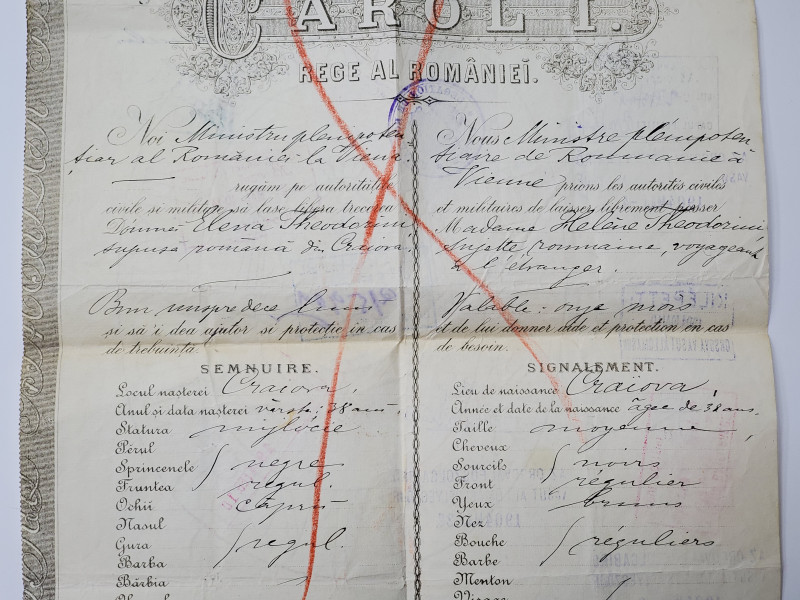 CAROL I.
REGE AL ROMÂNIEĬ.
Noi Ministru plenipoten-
țiar al României la Viena.
rugăm pe autoritățile
civile si militare să lase libera trecerea
Dómnei Elena Theodorini
supusa română din Craiova.
Bun unsprezece luni
și să 'i dea ajutor si protecție in cas
de trebuință.
SEMNUIRE.
Locul nașterei Craiova,
Anul și data nașterei vârsta: 38 ani,
Statura mijlocie
Pĕrul
Sprincenele negre
Fruntea regul.
Ochii căprii
Nasul
Gura regul.
Barba
Bărbia
Nous Ministre plénipoten-
tiaire de Roumanie à
Vienne prions les autorités civiles
et militaires de laisser librement passer
Madame Hélène Theodorini,
sujette roumaine, voyageant
à l'étranger.
Valable: onze mois
et de lui donner aide et protection en cas
de besoin.
SIGNALEMENT.
Lieu de naissance Craïova,
Année et date de la naissance âgée de 38 ans.
Taille moyenne,
Cheveux
Sourcils noirs
Front régulier
Yeux bruns
Nez
Bouche réguliers
Barbe
Menton
Visage
KILÉPETT